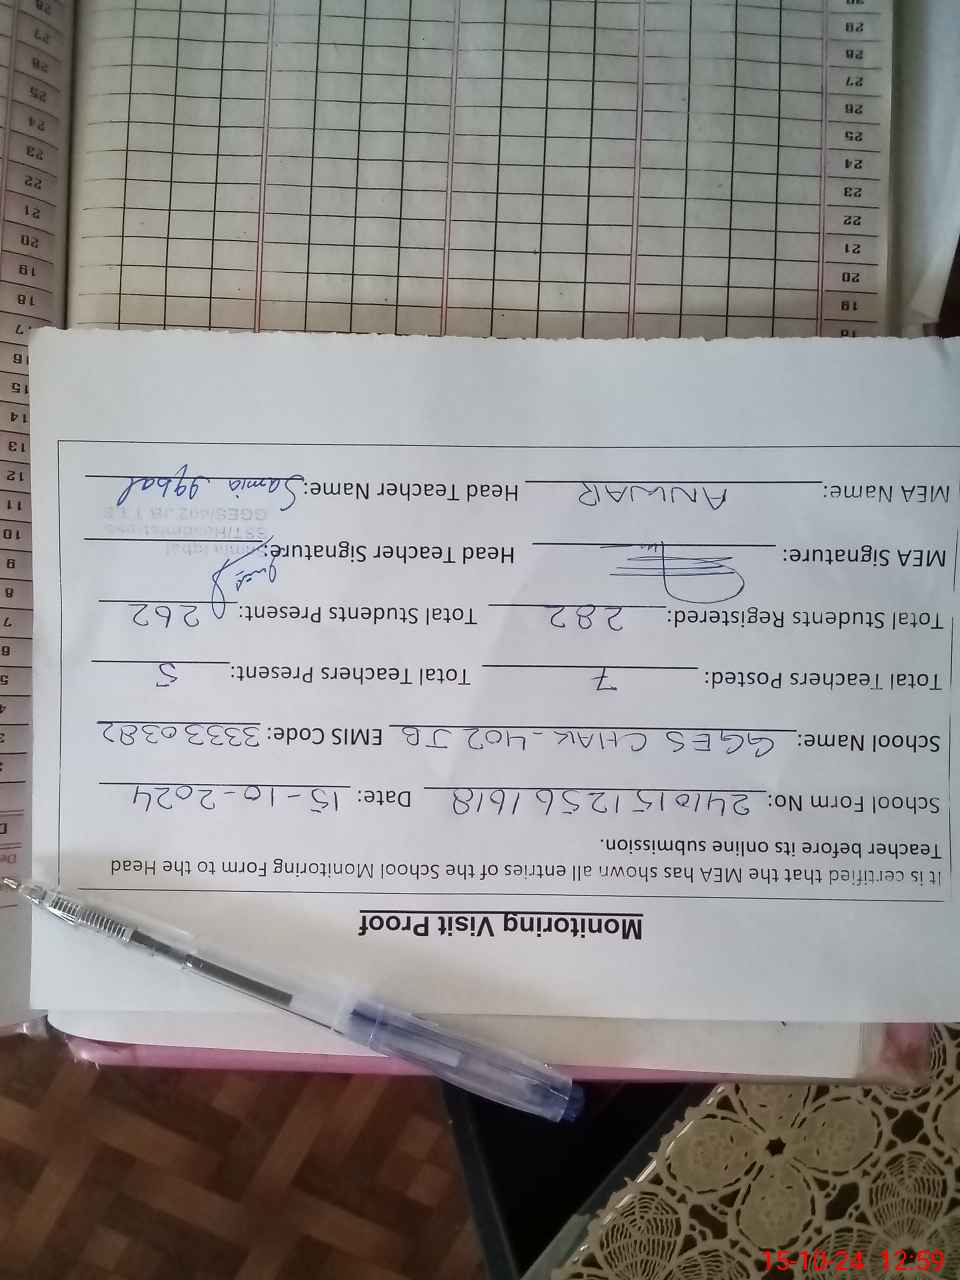 Monitoring Visit Proof
It is certified that the MEA has shown all entries of the School Monitoring Form to the Head
Teacher before its online submission.
School Form No: 241015 1256 1618 Date: 15-10-2024
School Name: GGES CHAK-402 JB EMIS Code: 33330382
Total Teachers Posted: 7 Total Teachers Present: 5
Total Students Registered: 282 Total Students Present: 262
MEA Signature: Head Teacher Signature:
Samia Iqbal
SST/Headmistress
GGES/402 JB T.T.S
MEA Name: ANWAR Head Teacher Name: Samia Iqbal
18
19
20
21
22
23
24
25
26
27
28
29
30
3
4
5
6
7
8
9
10
11
12
13
14
15
16
17
18
19
20
21
22
23
24
25
26
27
28
15-10-24 12:59